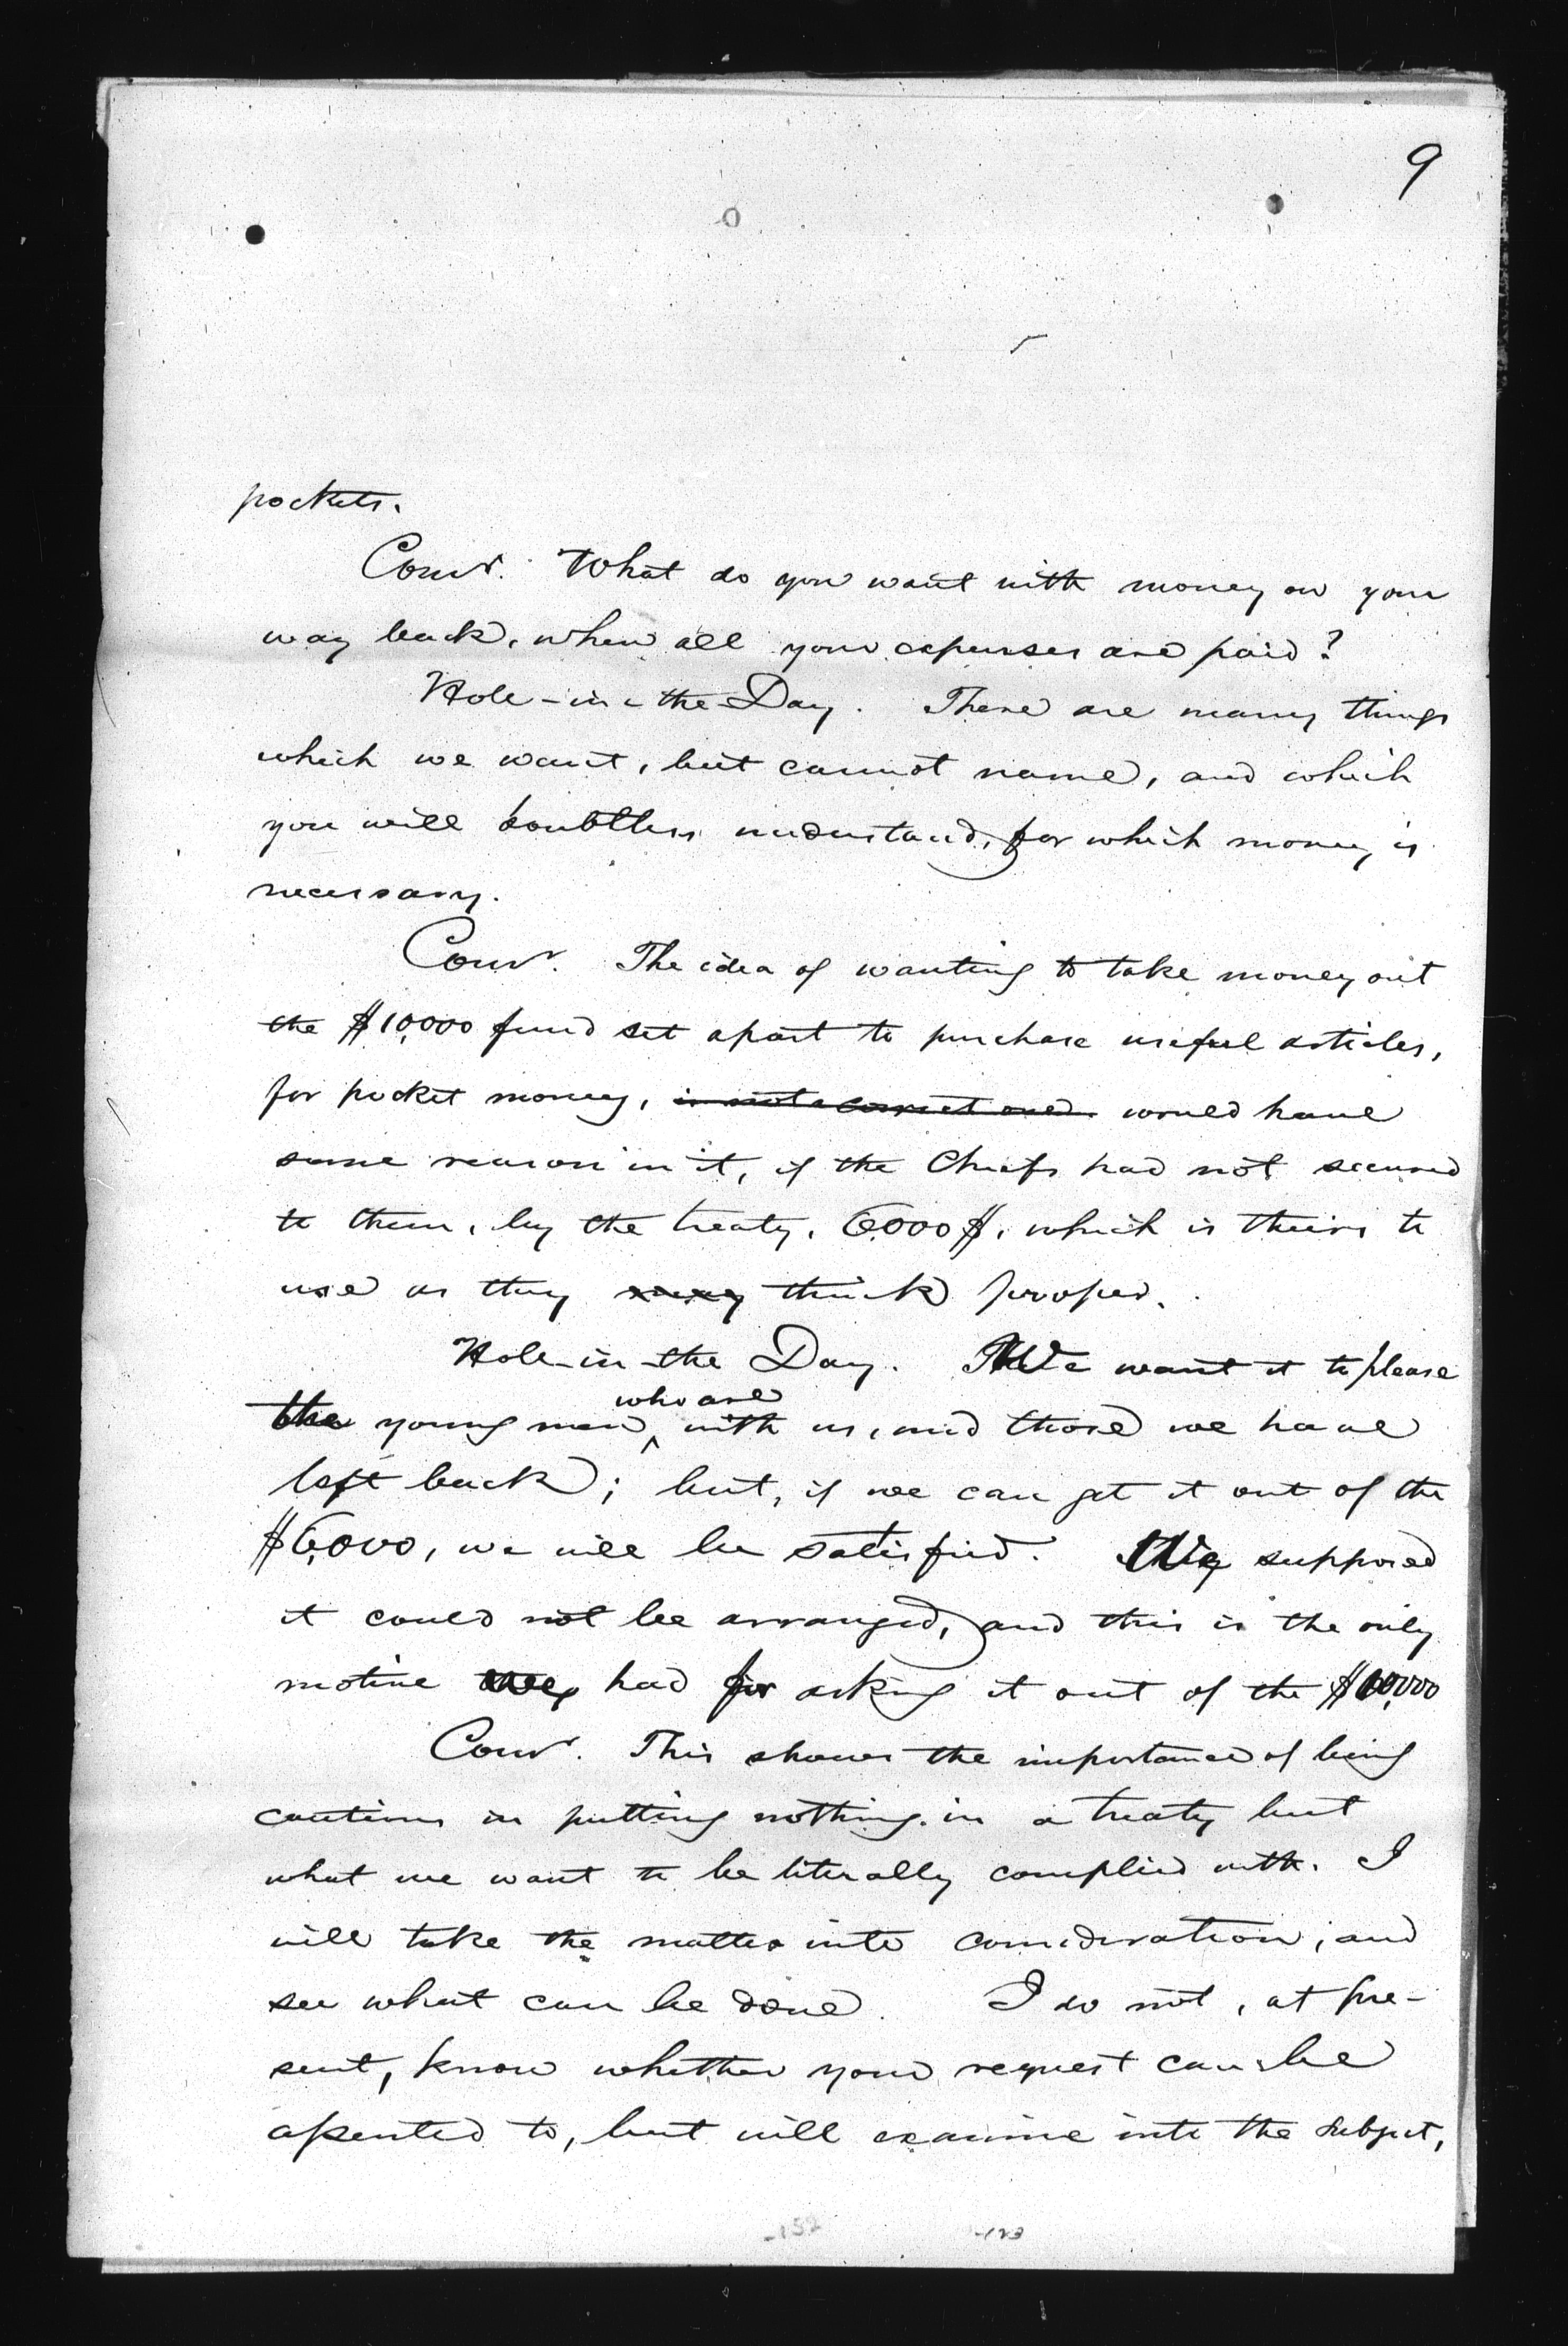 9
pockets.
Comr. What do you want with money on your
way back, when all your expenses are paid?
Hole-in-the-Day. There are many things
which we want, but cannot name, and which
you will doubtless understand, for which money is
necessary.
Comr. The idea of wanting to take money out
the $10,000 fund set apart to purchase useful articles,
for pocket money, is not a correct one. would have
some reason in it, if the Chiefs had not secured
to them, by the treaty, 6000$, which is theirs to
use as they may think proper.
Hole-in-the Day. We want it to please
who are
the young men ^ with us, and those we have
left back; but, if we can get it out of the
$6,000, we will be satisfied. We supposed
it could not be arranged, and this is the only
motive we had for asking it out of the $10,000
Comr. This shows the importance of being
cautious in putting nothing in a treaty but
what we want to be literally complied with. I
will take the matter into consideration, and
see what can be done. I do not, at pre-
sent, know whether your request can be
assented to, but will examine into the subject,
-152 -123